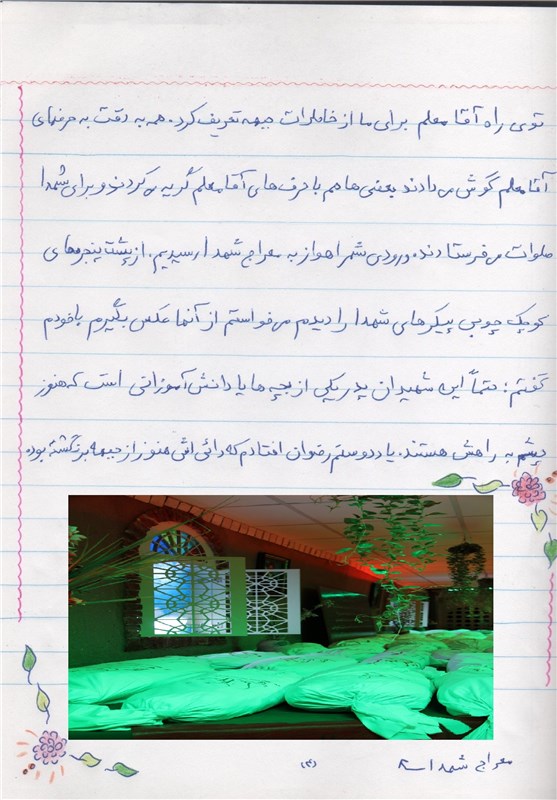 توی راه آقا معلم برای ما از خاطرات جبهه تعریف کرد. همه به دقت به حرفهای
آقا معلم گوش می دادند بعضی ها هم با حرف های آقا معلم گریه می کردند و برای شهدا
صلوات می فرستادند. ورودی شهر اهواز به معراج شهدا رسیدیم. از پشت پنجره های
کوچک چوبی پیکرهای شهدا را دیدم می خواستم از آنها عکس بگیرم با خودم
گفتم: حتماً این شهیدان پدر یکی از بچه ها یا دانش آموزانی است که هنوز
چشم به راهش هستند. یاد دوستم رضوان افتادم که دائی اش هنوز از جبهه برنگشته بود.
معراج شهدا